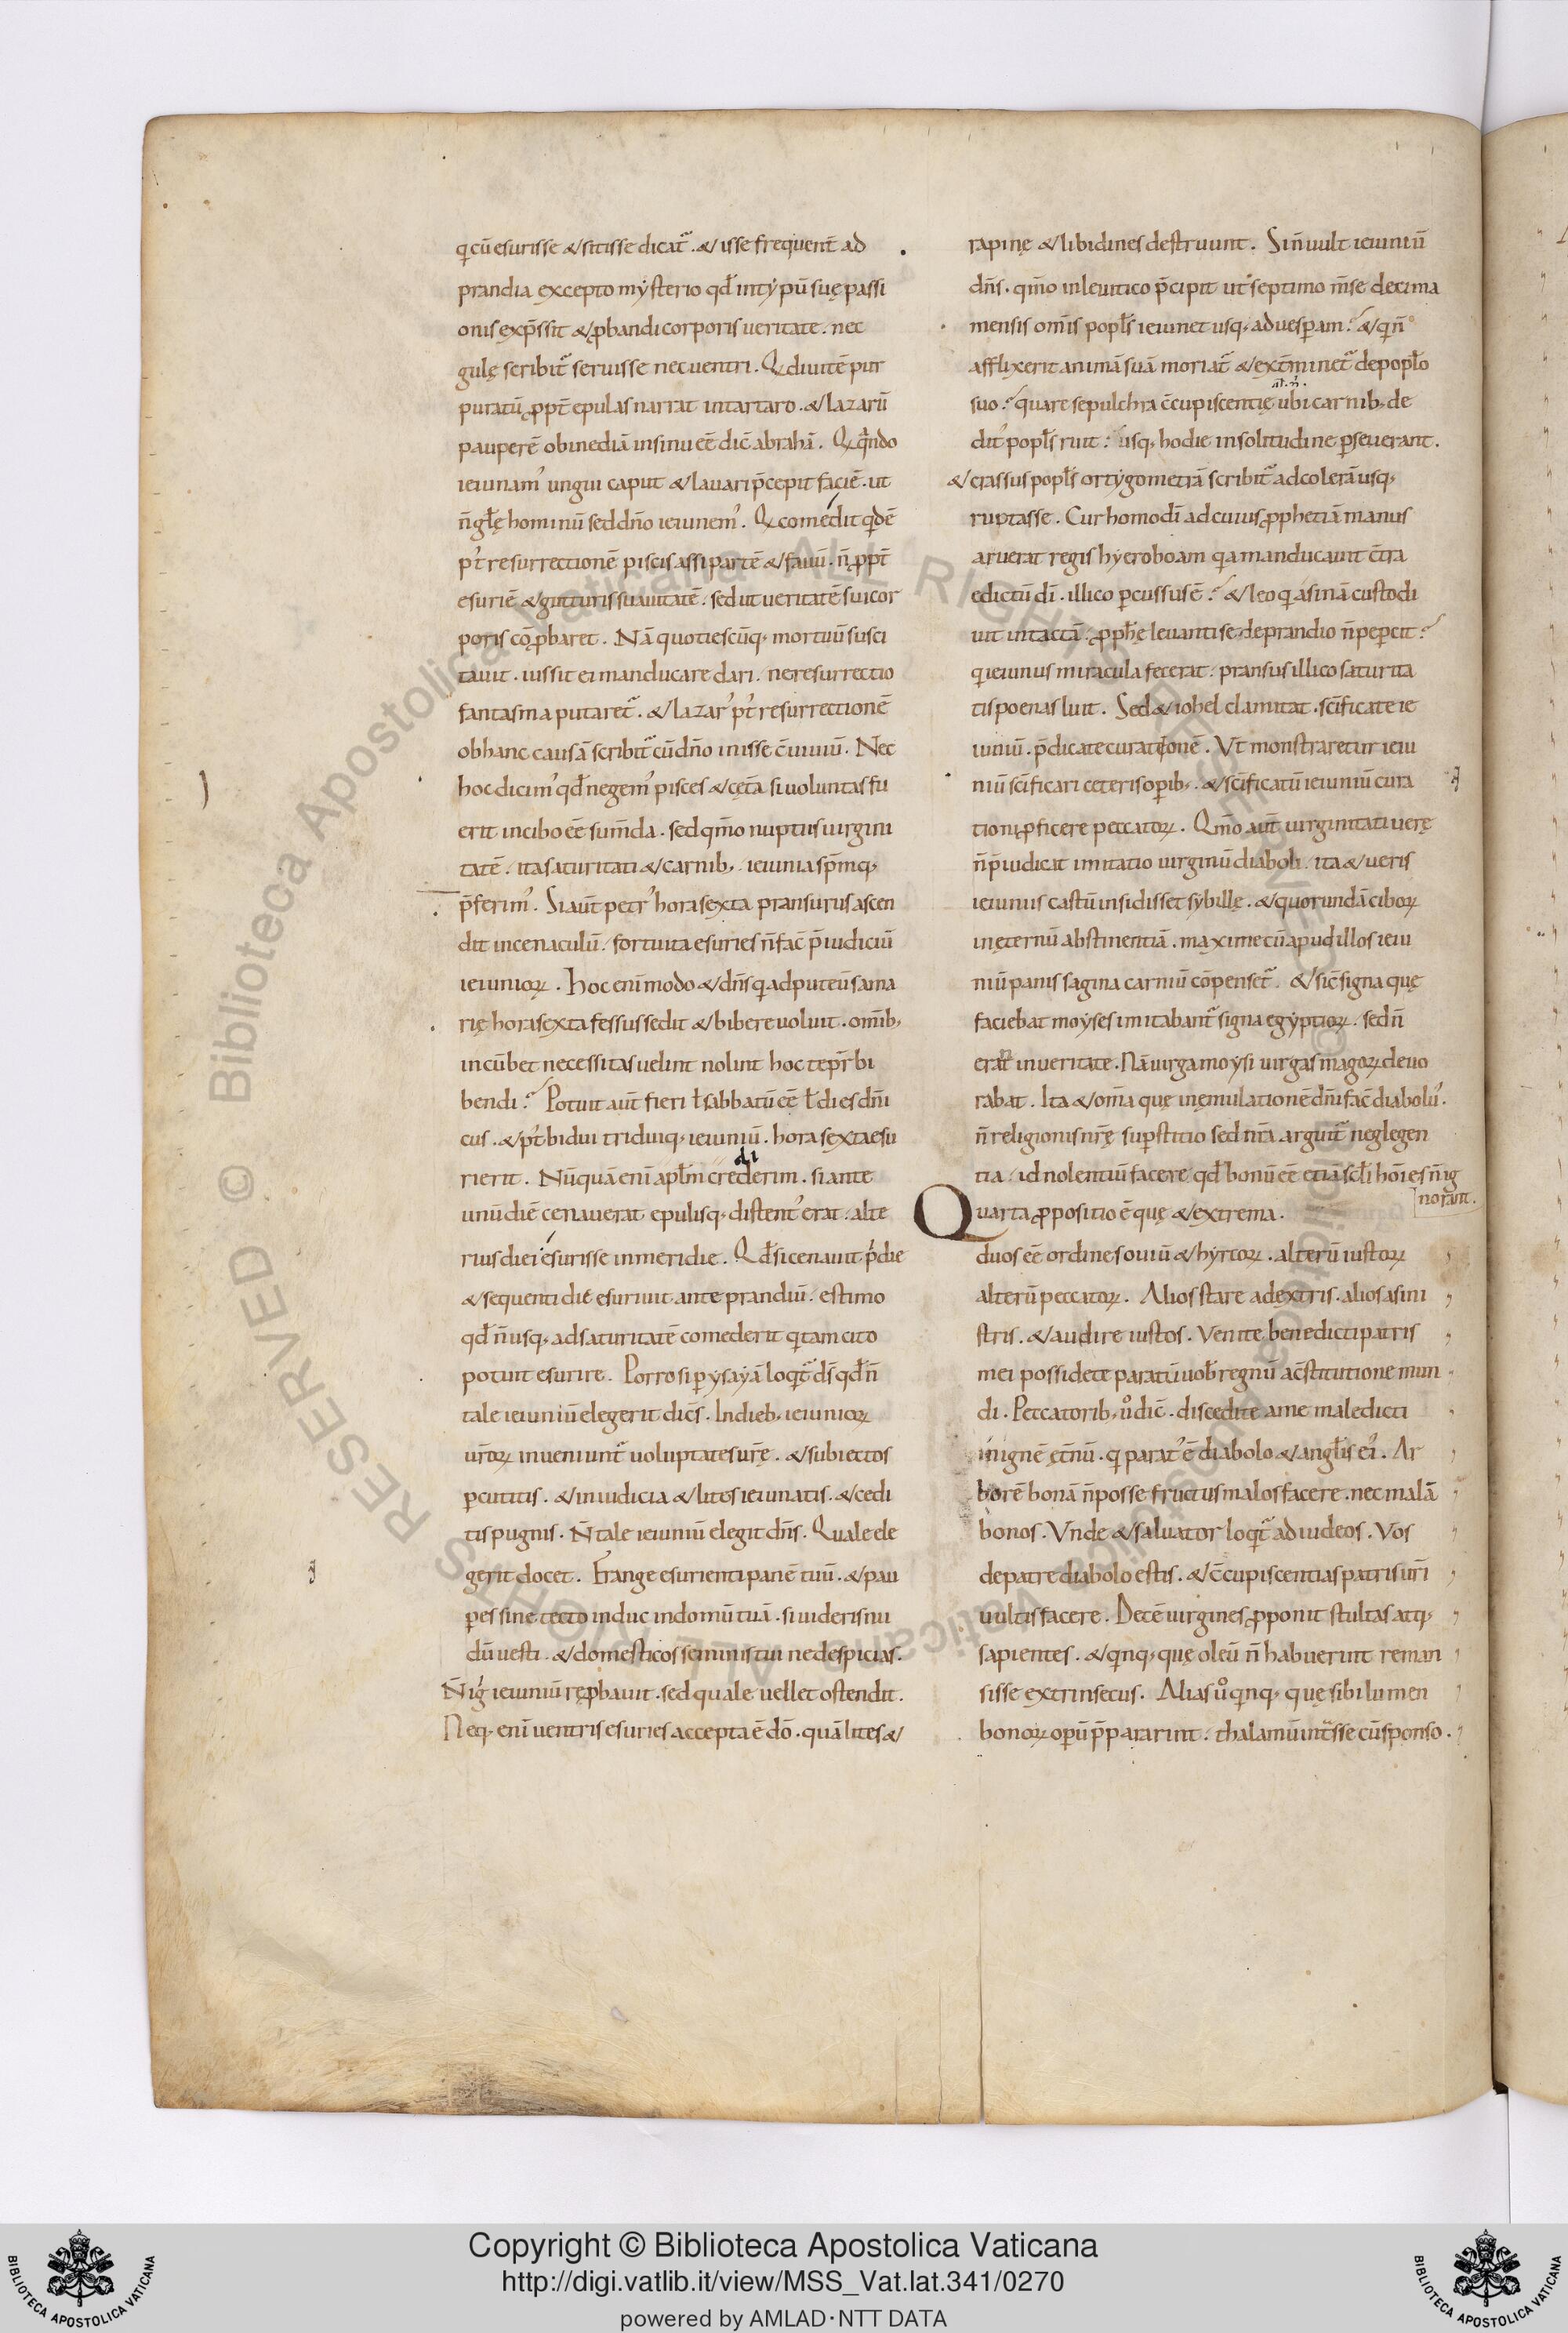 qcū esurisse & sitisse dicat᷑ . & isse frequent̄ ad
prandia excepto mysterio qđ in typū suę passi
onis exp̄ssit & ꝓbandi corporis ueritate . nec
gulę scribit᷑ seruisse nec uentri . Qd diuitē pur
puratū ꝓpt̄ epulas narrat in tartaro . & lazarū
pauperē ob inediā in sinu eē dic̄ abrahā . Qd qn̄do
ieiunam᾿ ungui caput & lauari p̄cepit faciē . ut
n̄ gl̄ę hominū sed dn̄o ieiunem᾿ . Qd comedit qdē
pt᾿ resurrectionē piscis assi partē & fauū . n̄ ꝓpt̄
esuriē & gutturis suauitatē . sed ut ueritatē sui cor
poris cōꝓbaret . Nā quotiescūq; mortuū susci
tauit . iussit ei manducare dari . ne resurrectio
fantasma putaret᷑ . & lazar᾿ pt᾿ resurrectionē
ob hanc causā scribit᷑ cū dn̄o inisse c̄uiuiū . Nec
hoc dicim᾿ qđ negem᾿ pisces & cęt̄a si uoluntas fu
erit in cibo eē sum̄da . sed qm̄o nuptus uirgini
tatē . ita saturitati & carnib; ieiunia sp̄m̄q;
p̄ferim᾿ . Si aut̄ petr᾿ hora sexta pransurus ascen
dit in cenaculū . fortuita esuries n̄ fac̄ p̄iudiciū
ieiuniorꝝ . Hoc eni modo & dn̄s q ad puteū sama
rię hora sexta fessus sedit & bibere uoluit . om̄ib;
incūbet necessitas uelint nolint hoc tēpr̄ bi
bendi . Potuit aut̄ fieri ł sabbatū eē ł dies dn̄i
cus . & pt᾿ bidui triduiq; ieiuniū . hora sexta esu
rierit . Nūquā eni apl̄m crederim . si ante
di
unū diē cenauerat epulisq; distent᾿ erat . alte
rius diei esurisse in meridie . Qđ si cenauit p᾿die
& sequenti die esuriuit ante prandiū . estimo
qđ n̄ usq; ad saturitatē comederit q tam cito
potuit esurire . Porro si p ysayā loqt᷑ ds̄ qđ n̄
tale ieiuniū elegerit dic̄s . In dieb; ieiuniorꝝ
ur̄orꝝ inueniunt᷑ uoluptates ur̄ę . & subiectos
pcutitis . & in iudicia & lites ieiunatis . & cedi
tis pugnis . N̄ tale ieiuniū elegit dn̄s . Quale ele
gerit docet . Frange esurienti panē tuū . & pau
peres sine tecto induc in domū tuā . si uideris nu
dū uesti . & domesticos seminis tui ne despicias .
N̄ ig᾿ ieiuniū reꝓbauit . sed quale uellet ostendit .
Neq; eni uentris esuries accepta ē dō . quā lites &
rapinę & libidines destruunt . Si n̄ uult ieiuniū
dn̄s . qm̄o in leuitico p̄cipit ut septimo m̄se decima
mensis om̄is popłs ieiunet usq; ad uesperam . & q n̄
afflixerit animā suā moriat᷑ & ext̄minet᷑ de popło
suo . quare sepulchra c̄cupiscentię ubi carnib; de
dit᾿ popłs ruit . usq; hodie in solitudine pseuerant .
& crassus popłs ortygometrā scribit᷑ ad colerā usq;
ruptasse . Cur homo dī ad cuius ꝓphetiā manus
aruerat regis hyeroboam qa manducauit c̄tra
edictū dī . illico pcussus ē . & leo q asinā custodi
uit intactā . ꝓph̄ę leuanti se de prandio n̄ pepcit .
q ieiunus miracula fecerat . pransus illico saturita
tis poenas luit . Sed & iohel clamitat . sc̄ificate ie
iuniū . p̄dicate curationē . Vt monstraretur ieiu
niū sc̄ificari ceteris opib; . & sc̄ificatū ieiuniū cura
tioni ꝓficere peccatorꝝ . Qm̄o aut̄ uirginitati uerę
n̄ p̄iudicat imitatio uirginū diaboli . ita & ueris
ieiuniis castū insidisset sybillę . & quorundā ciborꝝ
in ęternū abstinentiā . maxime cū apud illos ieiu
niū panis sagina carniū cōpenset᷑ . & sic̄ signa quę
faciebat moyses imitabant᷑ signa egyptiorꝝ . sed n̄
erant in ueritate . Nā uirga moysi uirgas magorꝝ deuo
rabat . Ita & om̄a quę in ęmulationē dn̄i fac̄ diabolu᾿ .
n̄ religionis nr̄ę supstitio sed nr̄a arguit᷑ neglegen
tia . id nolentiū facere qđ bonū eē etiā scl̄i hoīes n̄ ig
norant .
Quarta ꝓpositio ē quę & extrema .
duos eē ordines ouiū & hyrcorꝝ . alterū iustorꝝ
alterū peccatorꝝ . Alios stare a dextris . alios a sini
stris . & audire iustos . Venite benedicti patris
mei possidete paratū uob̄ regnū a c̄stitutione mun
di . Peccatorib; u̇ dic̄ . discedite a me maledicti
in ignē et̄nū . q parat᾿ ē diabolo & angłis ei᾿ . Ar
borē bonā n̄ posse fructus malos facere . nec malā
bonos . Vnde & saluator loqt᷑ ad iudeos . Vos
de patre diabolo estis . & c̄cupiscentias patris ur̄i
uultis facere . Decē uirgines ꝓponit stultas atq;
sapientes . & qnq; quę oleū n̄ habuerunt reman
sisse extrinsecus . Alias u̇ qnq; quę sibi lumen
bonorꝝ opū p̄pararint . thalamū int᷑sse cū sponso .
© Biblioteca Apostolica Vaticana ALL RIGHTS RESERVED
Copyright © Biblioteca Apostolica Vaticana
http://digi.vatlib.it/view/MSS_Vat.lat.341/0270
powered by AMLAD·NTT DATA
BIBLIOTECA APOSTOLICA VATICANA
BIBLIOTECA APOSTOLICA VATICANA